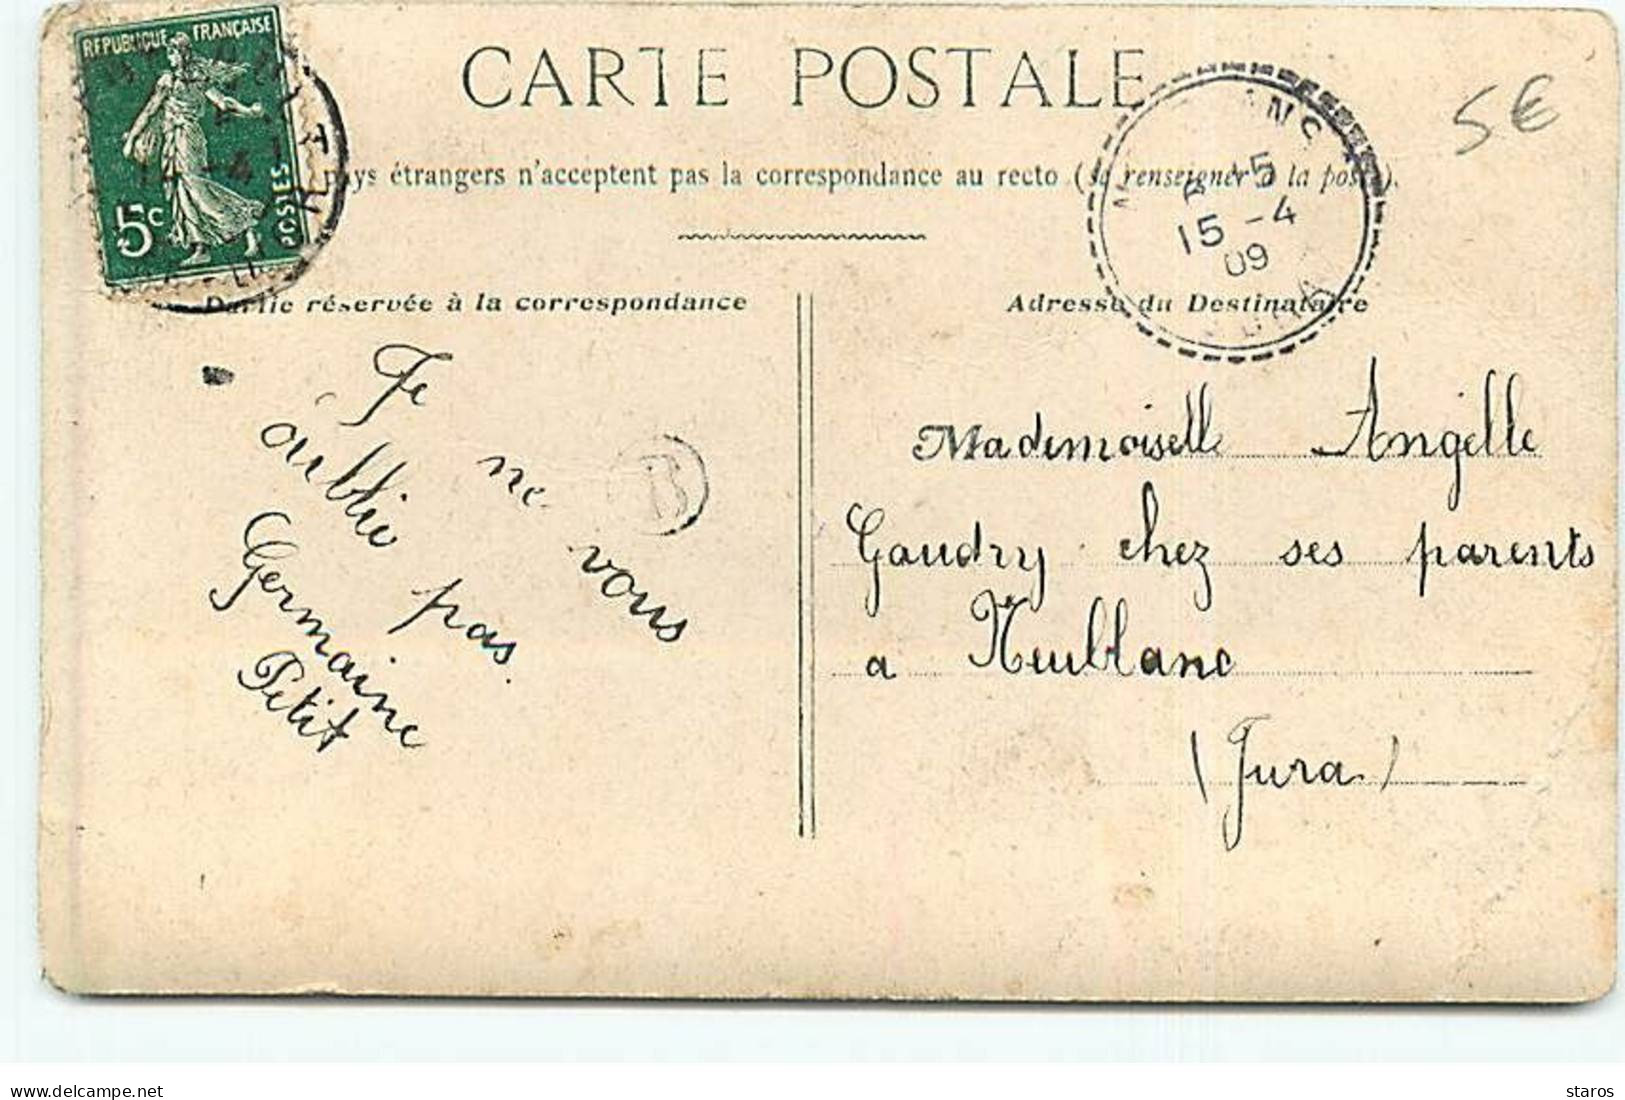 RÉPUBLIQUE FRANÇAISE
5c POSTES
14 -4
CARTE POSTALE
5€
pays étrangers n'acceptent pas la correspondance au recto (se renseigner à la poste).
15
15 -4
09
JURA
Partie réservée à la correspondance
Adresse du Destinataire
Je ne vous
oublie pas.
Germaine
Petit
B
Mademoiselle Angelle
Gaudry chez ses parents
a Neublanc
(Jura)
delcampe.net
staros